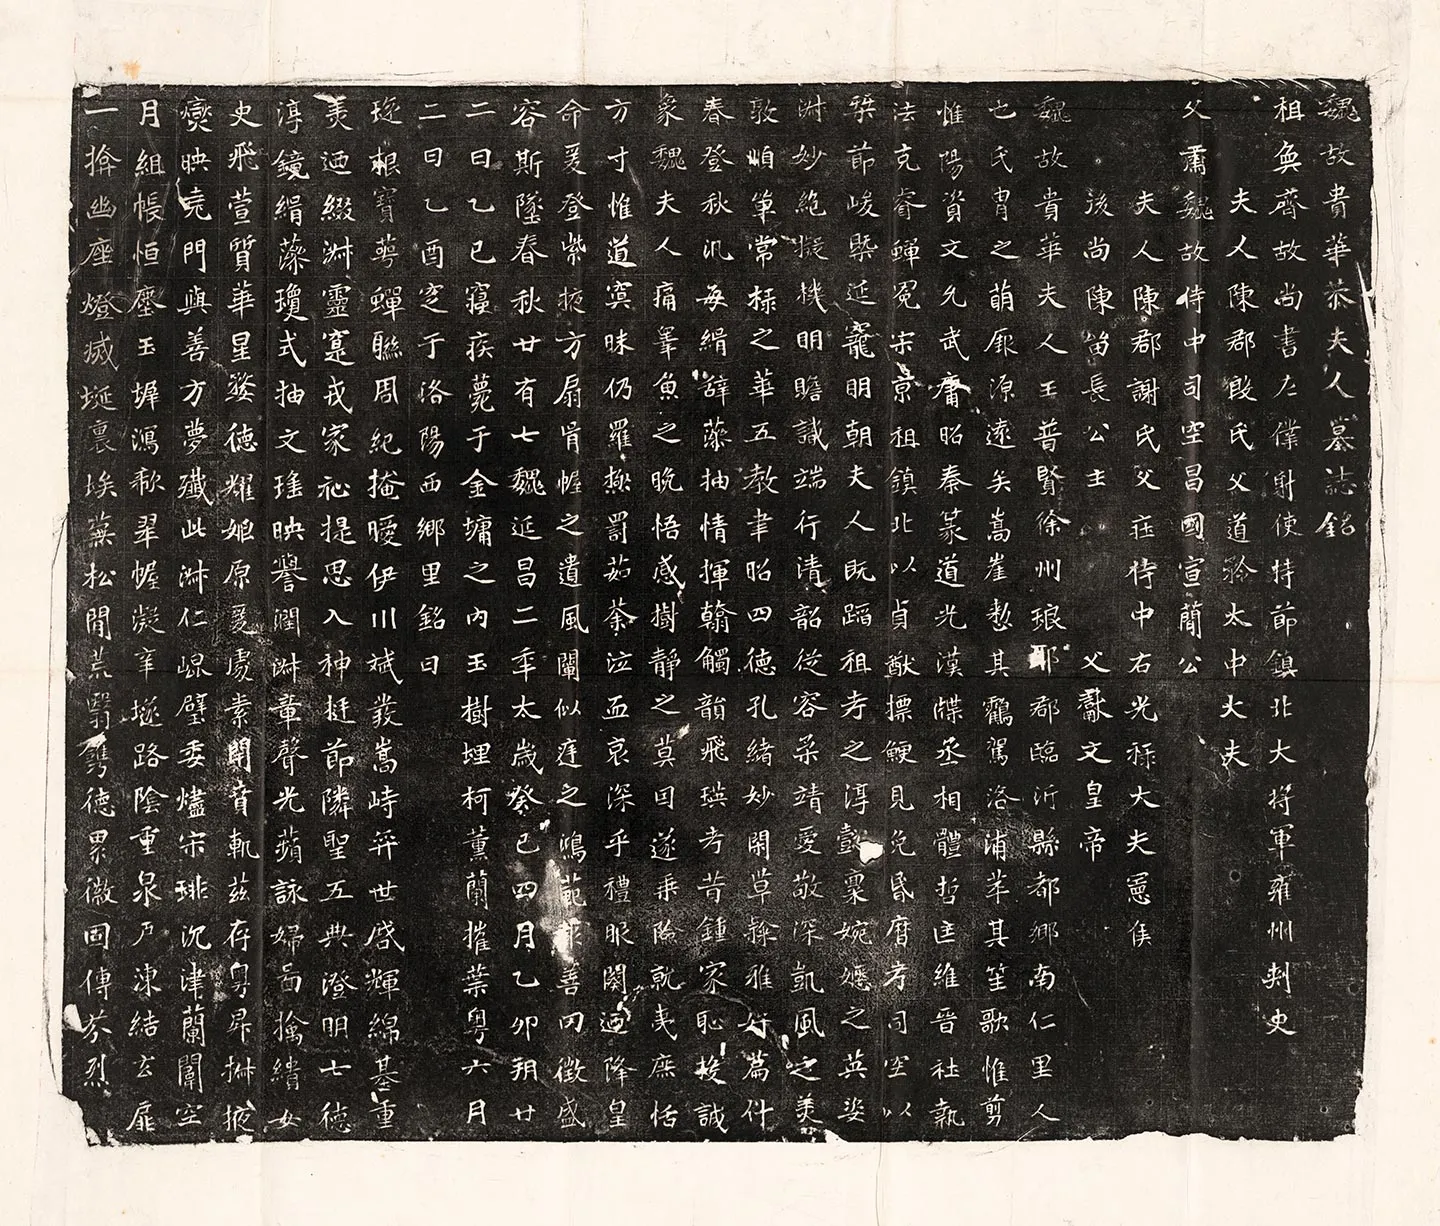 魏故貴華恭夫人墓誌銘
祖奐齊故尚書左僕射使持節鎮北大將軍雍州刺史
夫人陳郡殷氏父道矜太中大夫
父肅魏故侍中司空昌國宣簡公
夫人陳郡謝氏父莊侍中右光祿大夫憲侯
後尚陳留長公主 父獻文皇帝
魏故貴華夫人王普賢徐州琅耶郡臨沂縣都鄉南仁里人
也氏胄之萌厥源遠矣嵩崖慜其鸖駕洛浦萃其笙歌惟剪
惟陽資文允武痡昭秦篆道光漢牒丞相體哲匡維晉社執
法克睿蟬冕宋京祖鎮北以貞猷摽鯁見免昏曆考司空以
節峻槩延寵明朝夫人既蹈祖考之淳懿稟婉嫕之英姿
淑妙絶擬機明瞻識端行清韶從容柔靖愛敬深凱風之美
敦怕常棣之華五教聿昭四德孔緒妙閑草隸雅好篇什
春登秋汎每緝辭藻抽情揮翰觸韻飛瑛考昔鍾家恥投誠
象魏夫人痛皋魚之晚悟感樹靜之莫因遂乘險就夷庶恬
方寸惟道冥昧仍羅極罰茹荼泣血哀深乎禮服闋迺降皇
命爰登紫掖方扇胥幄之遺風闡似庭之鴻範報善罔徵盛
容斯墜春秋廿有七魏延昌二年太歲癸巳四月乙卯朔廿
二日乙巳寢疾薨于金墉之內玉樹埋柯薰蘭摧葉粵六月
二日乙酉窆于洛陽西鄉里銘曰
瑤根寶萼蟬聯周紀掩曖伊川斌藂嵩峙弈世啓輝綿基重
美迺綴淑靈寔戎家祉提思入神挺節隣聖五典澄明七德
淳鏡緝藻瓊式抽文瑤映譽潤淑章聲光蘋詠婦啚摛繢女
史飛萱質華星婺德耀姬原爰虔素閫賁軌茲存粵昇掖
爕映堯門與善方夢殱此淑仁崐璧委燼宋琲沉津蘭闈空
月組帳恒塵玉墀瀉秋翠幄凝辛墜路陰重泉戸凍結玄扉
一揜幽座燈滅埏裏埃蕪松閒荒翳鐫德累徽固傳芬烈